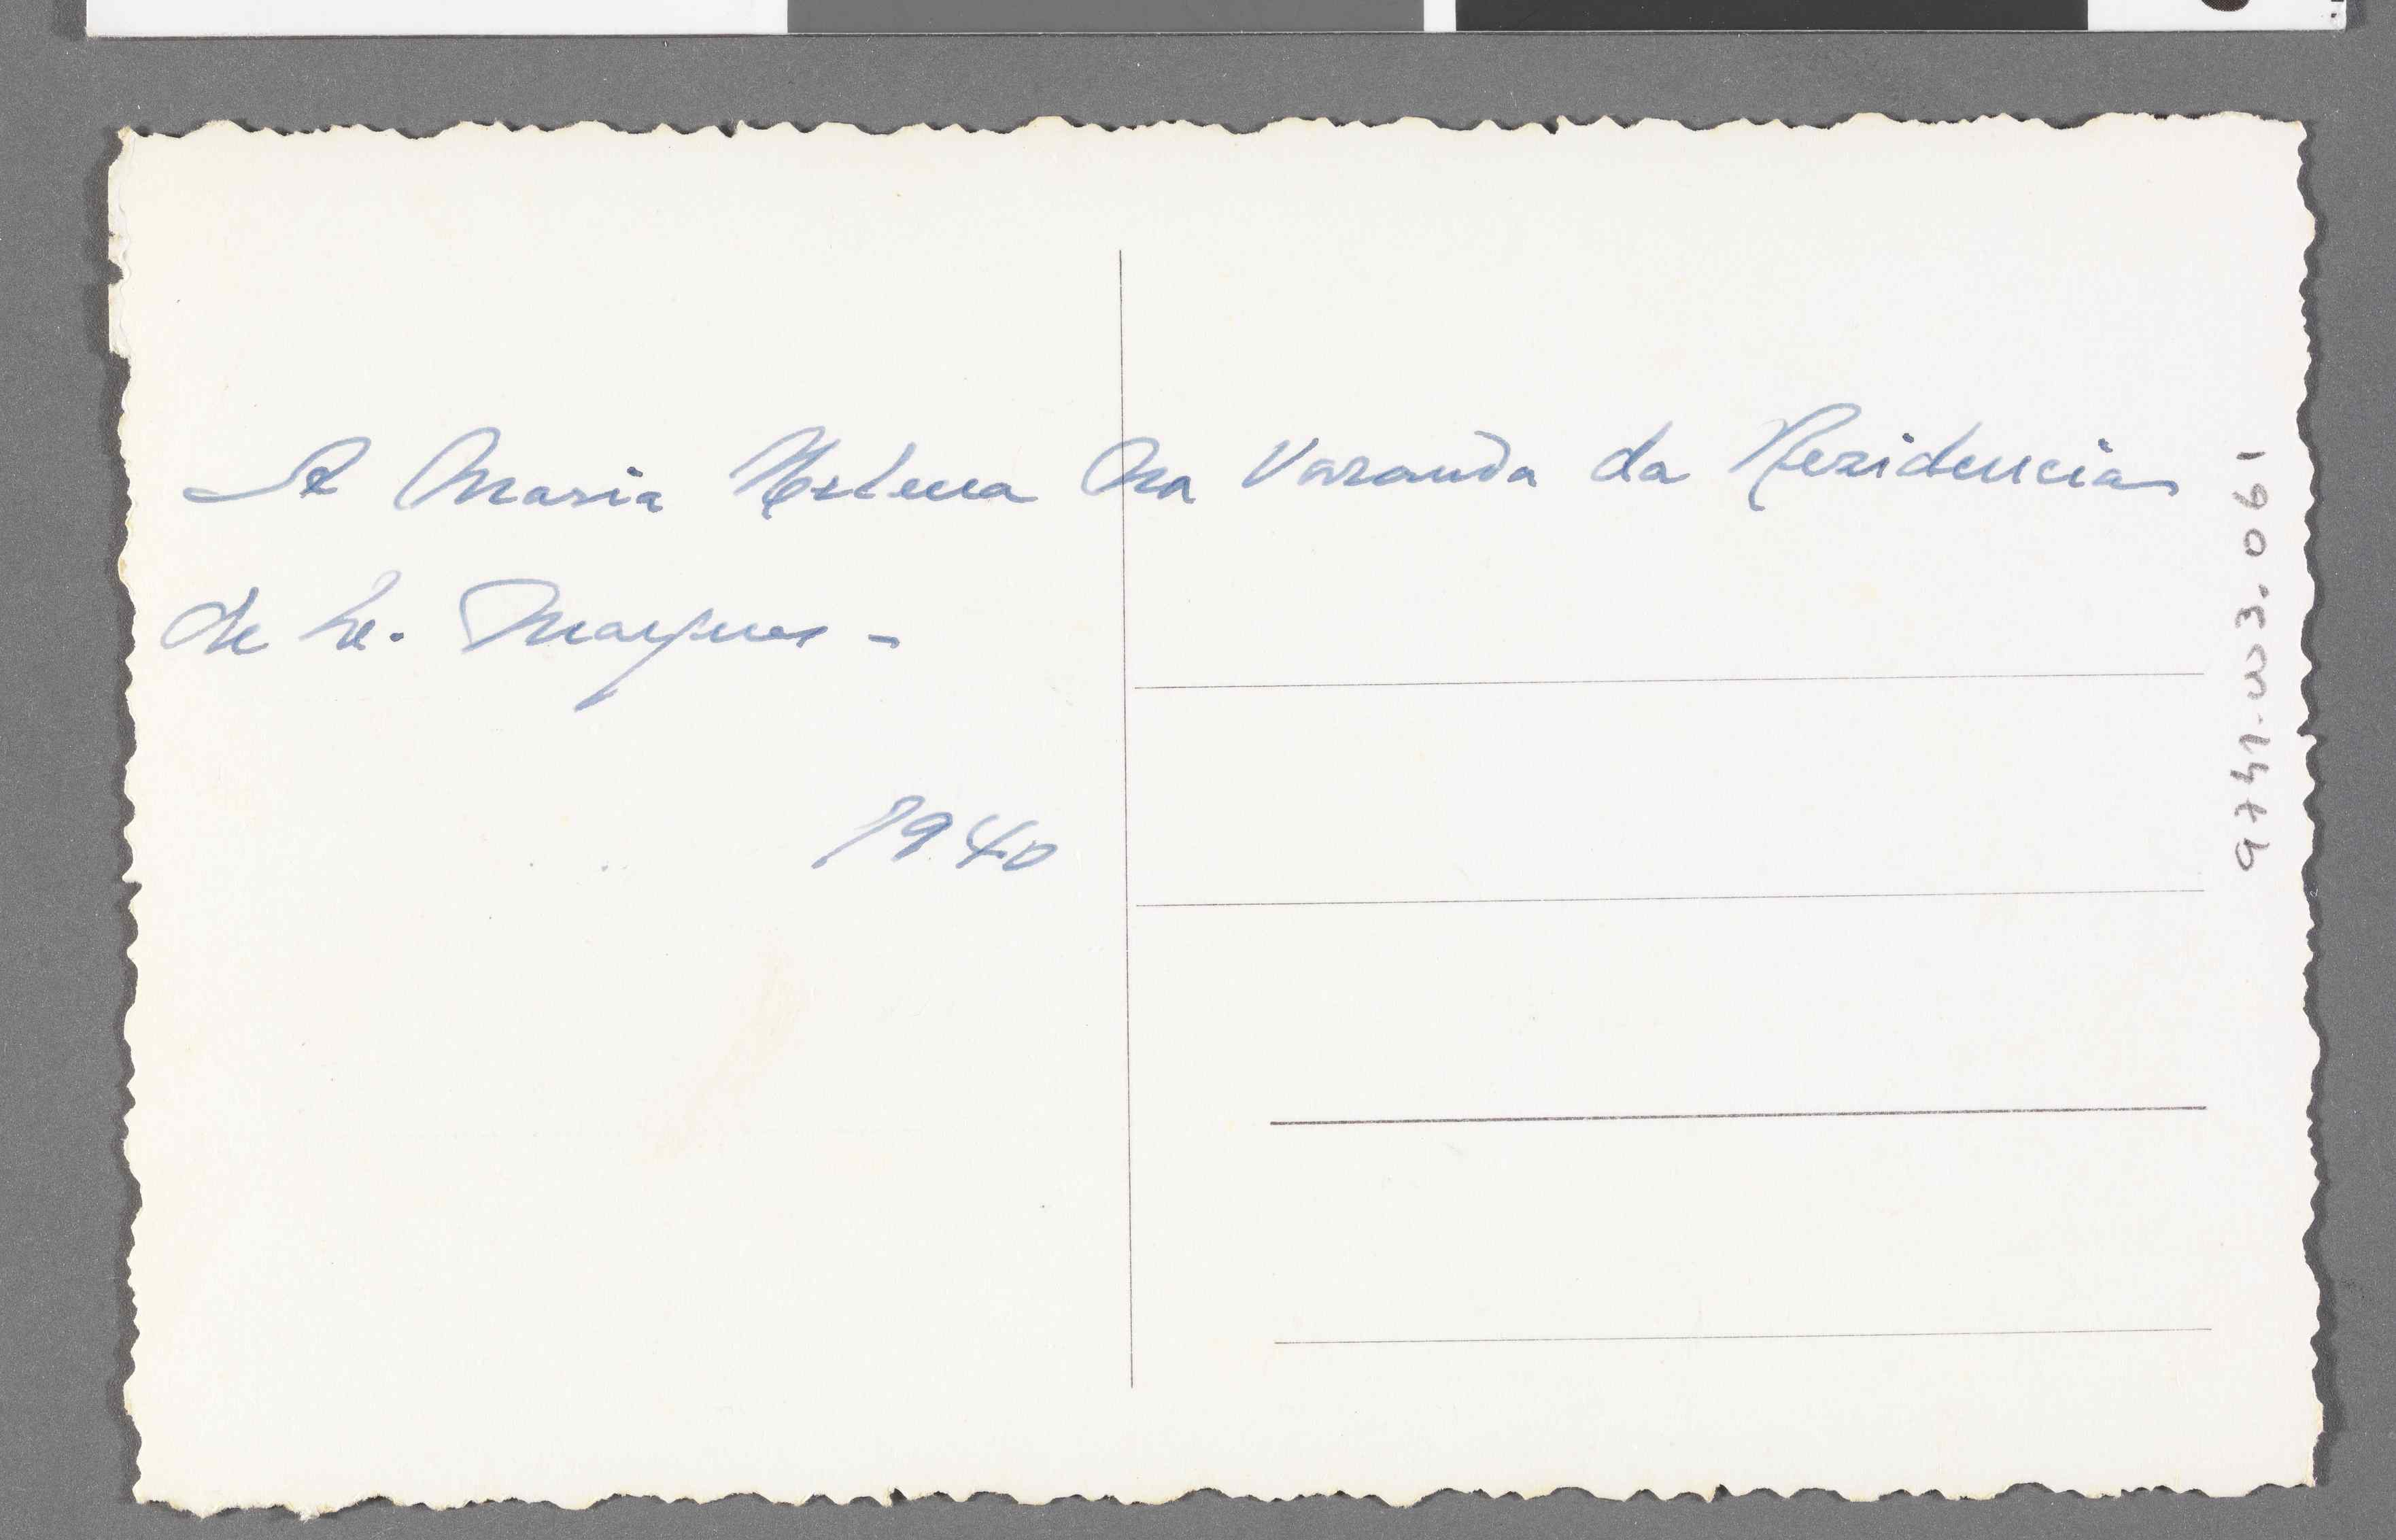 A Maria Helena na Varanda da Rezidencia
de Le. Marques -
1940